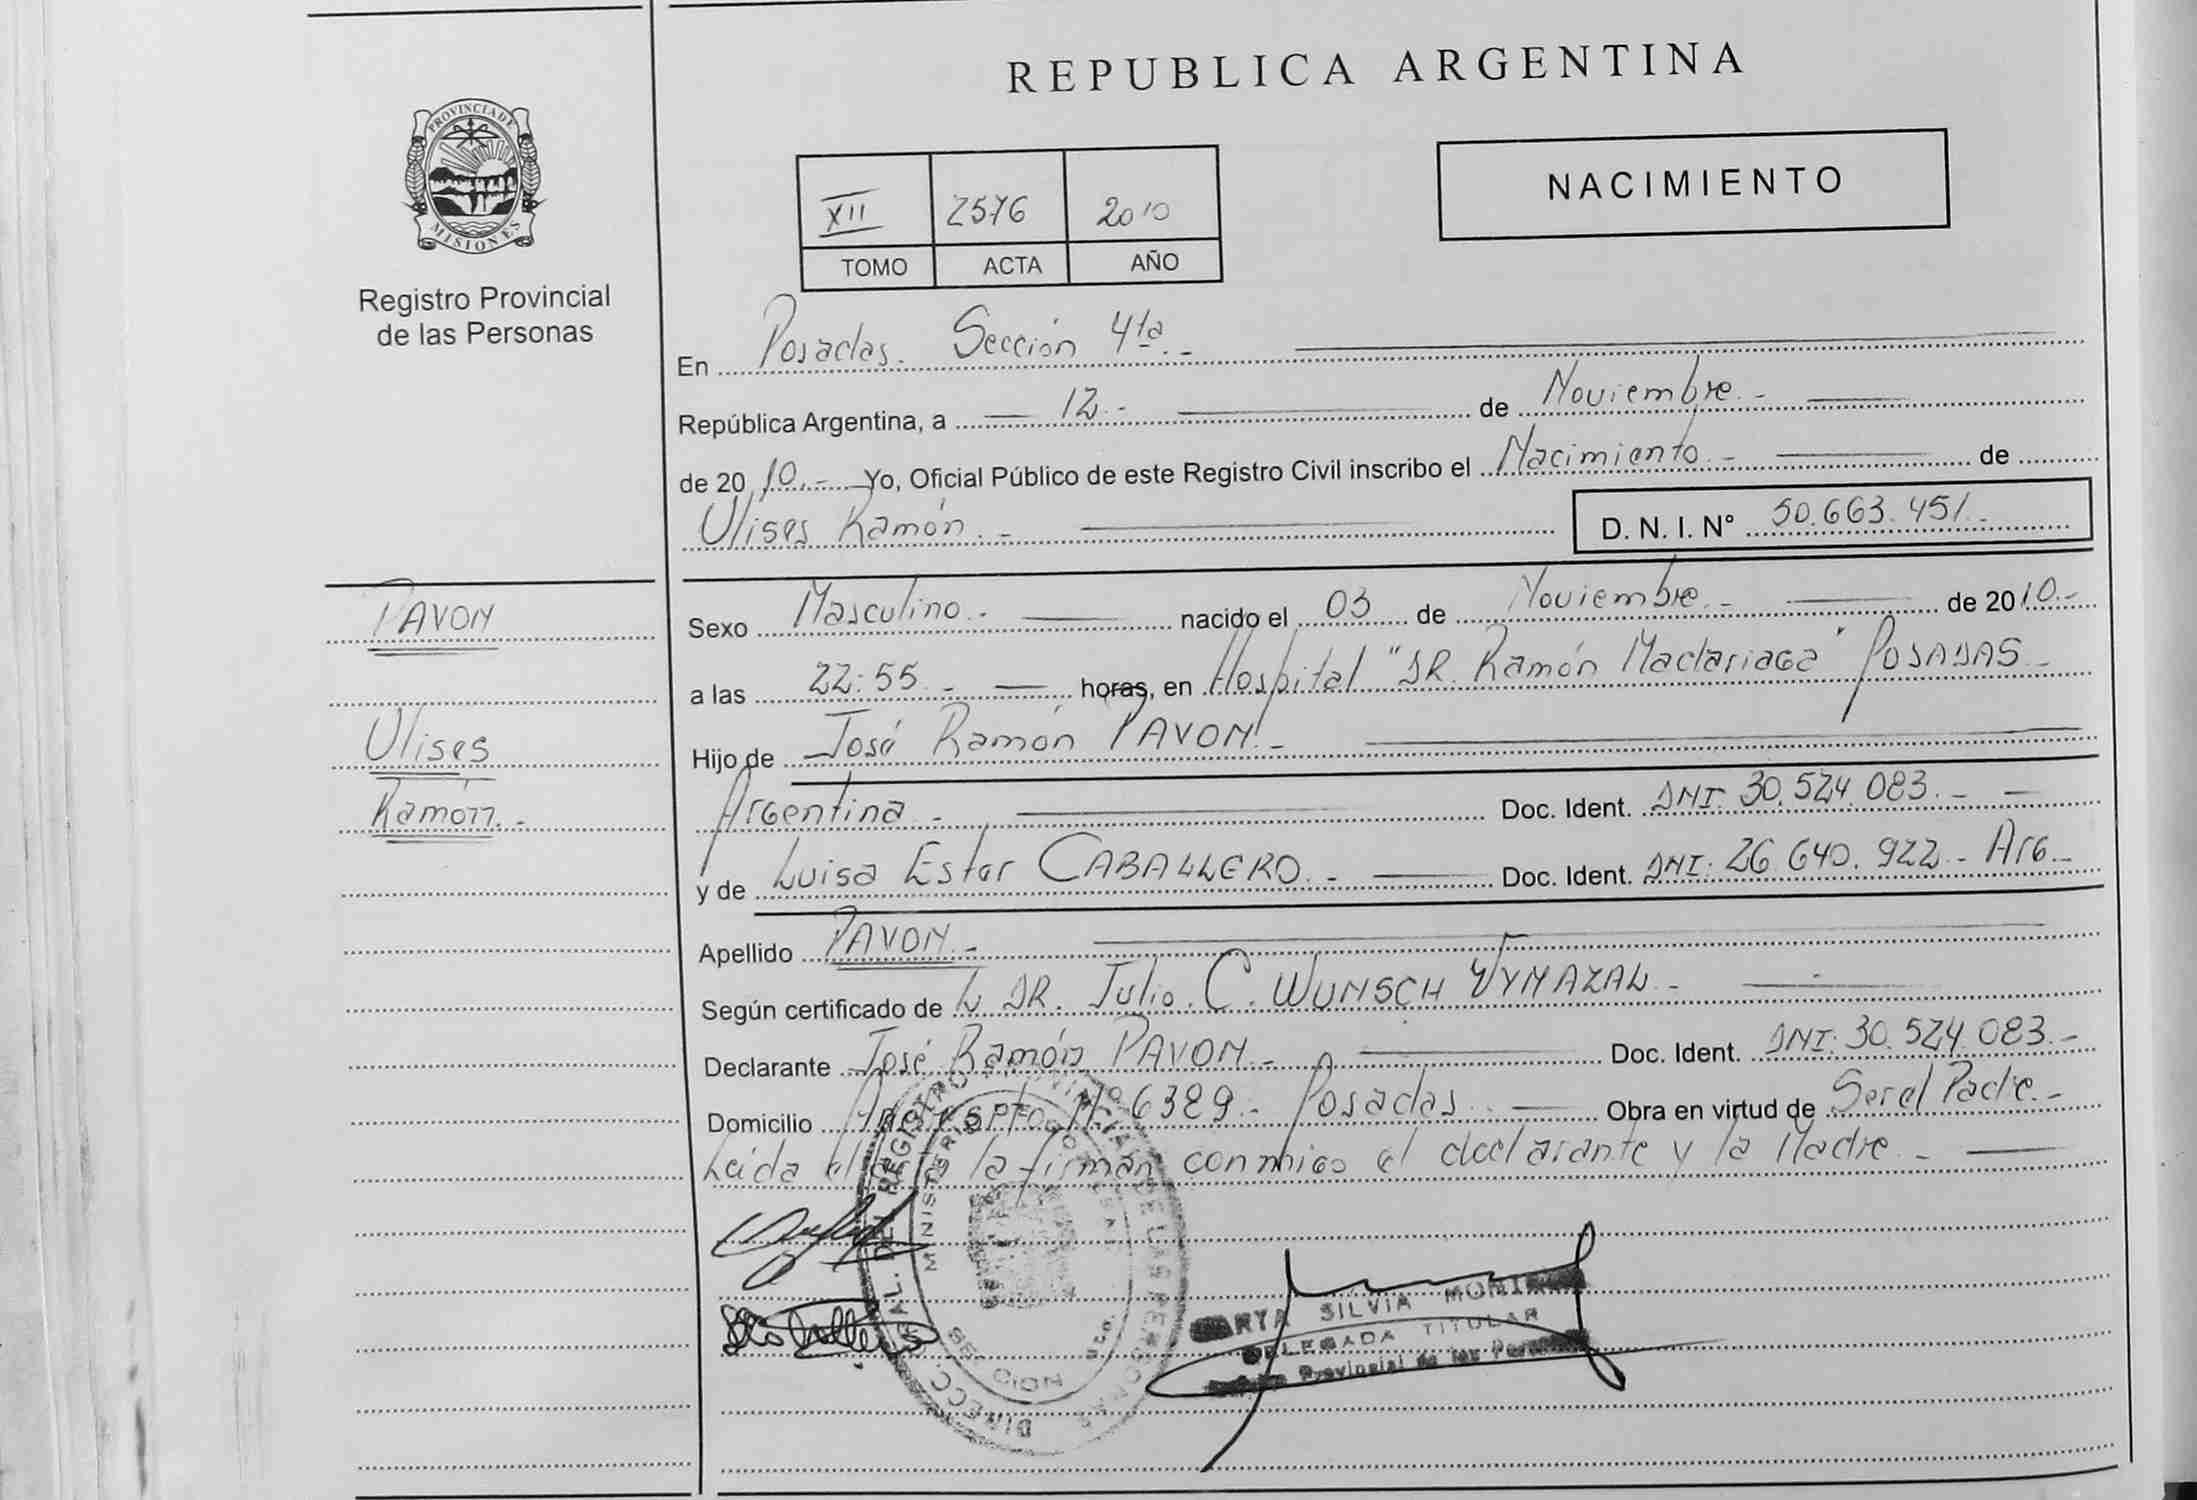 REPUBLICA ARGENTINA
PROVINCIA DE
MISIONES
Registro Provincial
de las Personas
NACIMIENTO
XII 2576 2010
TOMO ACTA AÑO
En Posadas. Sección 4ta.-
República Argentina, a 12.- de Noviembre.-
de 2010.- Yo, Oficial Público de este Registro Civil inscribo el Nacimiento.- de
Ulises Ramón.- D. N. I. N° 50.663.451.-
PAVON
Ulises
Ramón.-
Sexo Masculino.- nacido el 03 de Noviembre.- de 2010.-
a las 22:55.- horas, en Hospital "DR. Ramón Madariaga" POSADAS.-
Hijo de José Ramón PAVON.-
Argentina.- Doc. Ident. DNI: 30.524.083.-
y de Luisa Ester CABALLERO.- Doc. Ident. DNI: 26.640.922.- Arg.-
Apellido PAVON.-
Según certificado de DR. Julio. C. WUNSCH VYMAZAL.-
Declarante José Ramón PAVON.- Doc. Ident. DNI: 30.524.083.-
Domicilio N° 6389.- Posadas.- Obra en virtud de Ser el Padre.-
Leída el la firman conmigo el declarante y la Madre.-
DIRECC. GRAL. DEL REGISTRO PROVINCIAL DE LAS PERSONAS
MINISTERIO DE GOBIERNO
SECCION
SILVIA
DELEGADA TITULAR
Provincial de las Personas